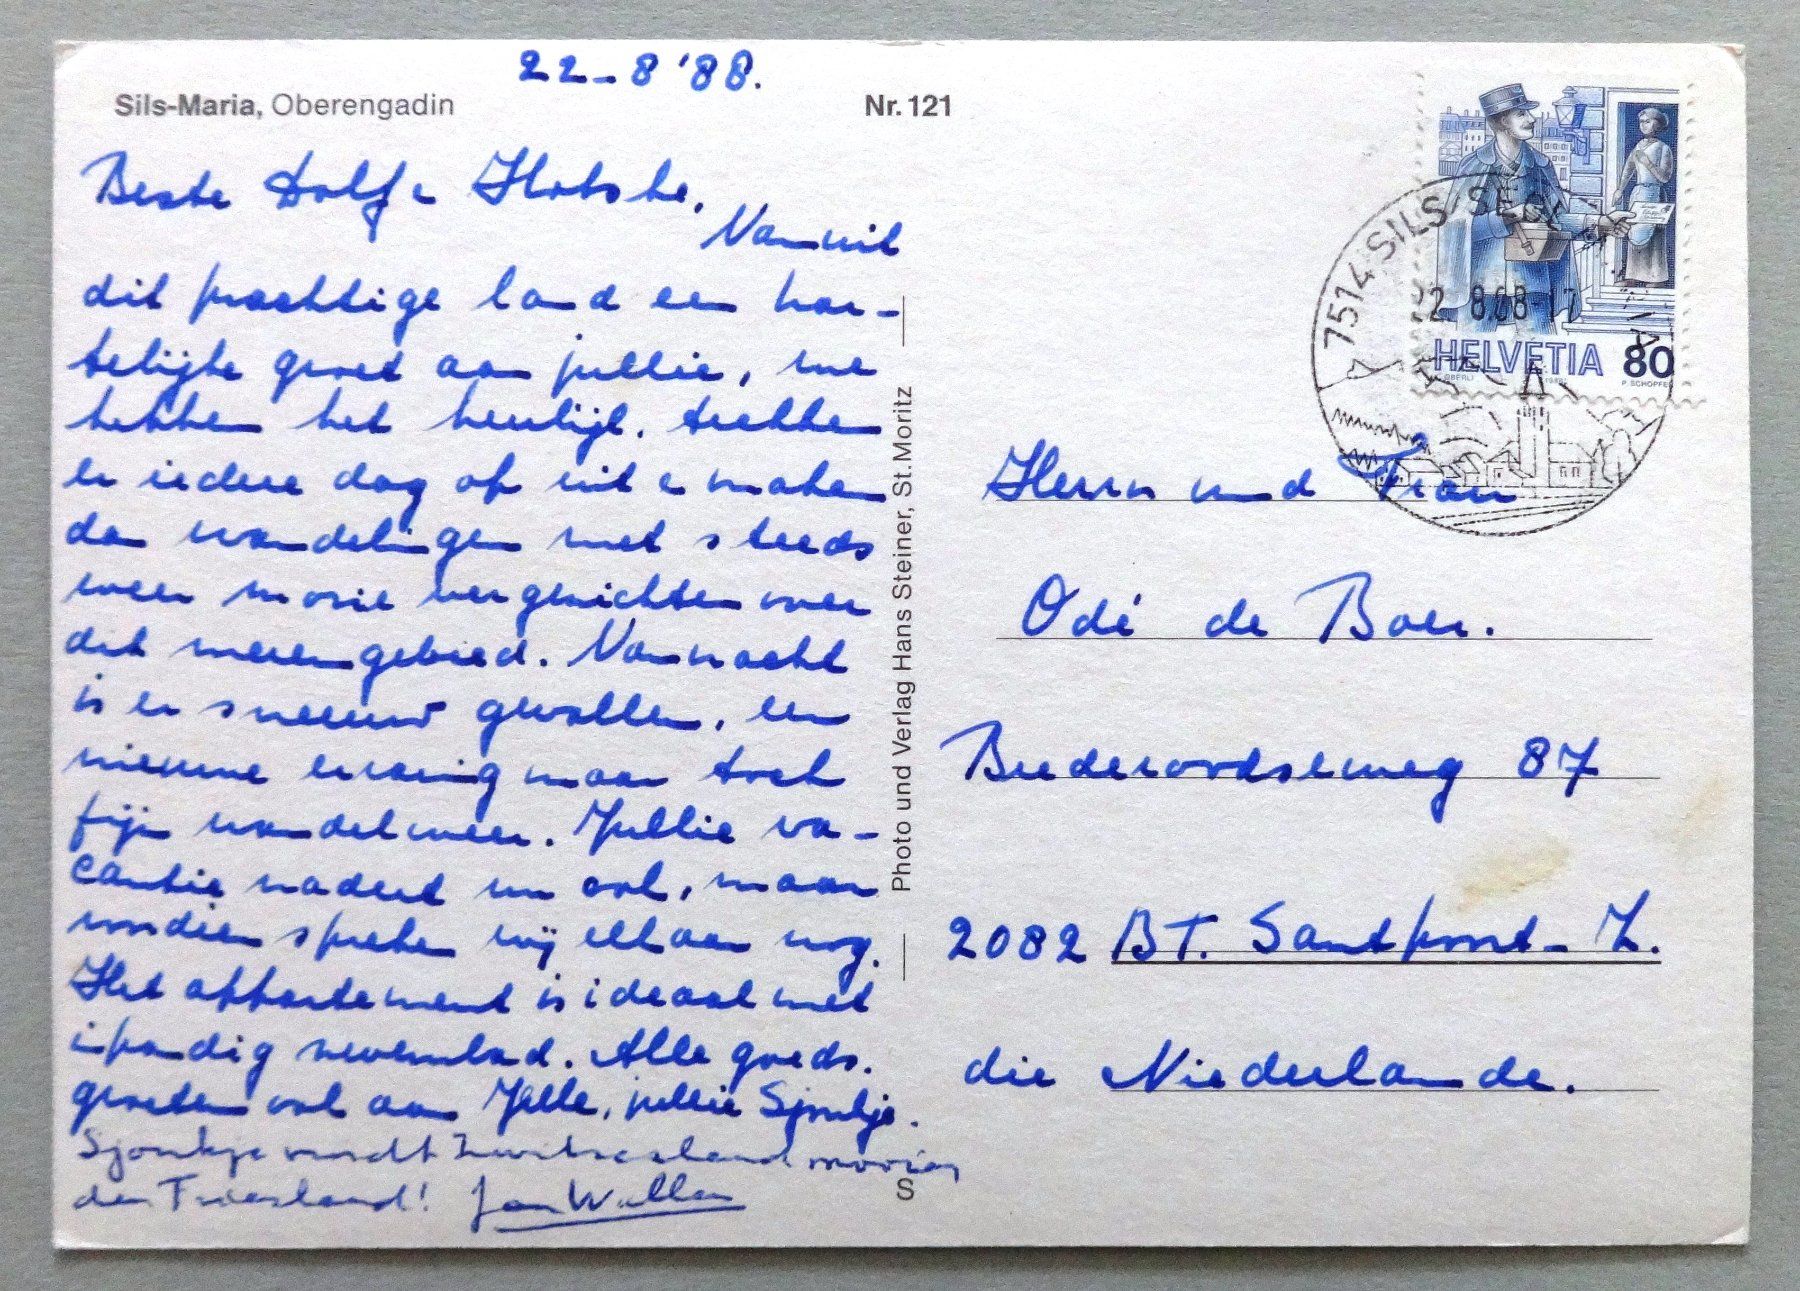 22-8 '88.
Sils-Maria, Oberengadin
Nr. 121
Beste Dolf e Hotske,
Vanuit
dit prachtige land een har-
telijke groet aan jullie, we
hebben het heerlijk, trekken
er iedere dag op uit e maken
dan wandelingen met steeds
weer mooie vergezichten over
dit merengebied. Vannacht
is er sneeuw gevallen, een
nieuwe ervaring maar toch
fijn wandelweer. Jullie va-
cantie nadert nu ook, maar
voordien spreken wij elkaar nog.
Het appartement is ideaal met
zwembad. Alle goeds.
groeten ook aan Jelle, jullie Sjoukje.
Sjoukje vindt Zwitserland mooier
dan Friesland! Jan Willem
Photo und Verlag Hans Steiner, St. Moritz
S
HELVETIA 80
OBERLI
P. SCHÖPFER
7514 SILS/SEGL
2. 8.88-17
Herrn und Frau
Odé de Boer.
Brederoodseweg 87
2082 BT. Santpoort-Z.
die Niederlande.